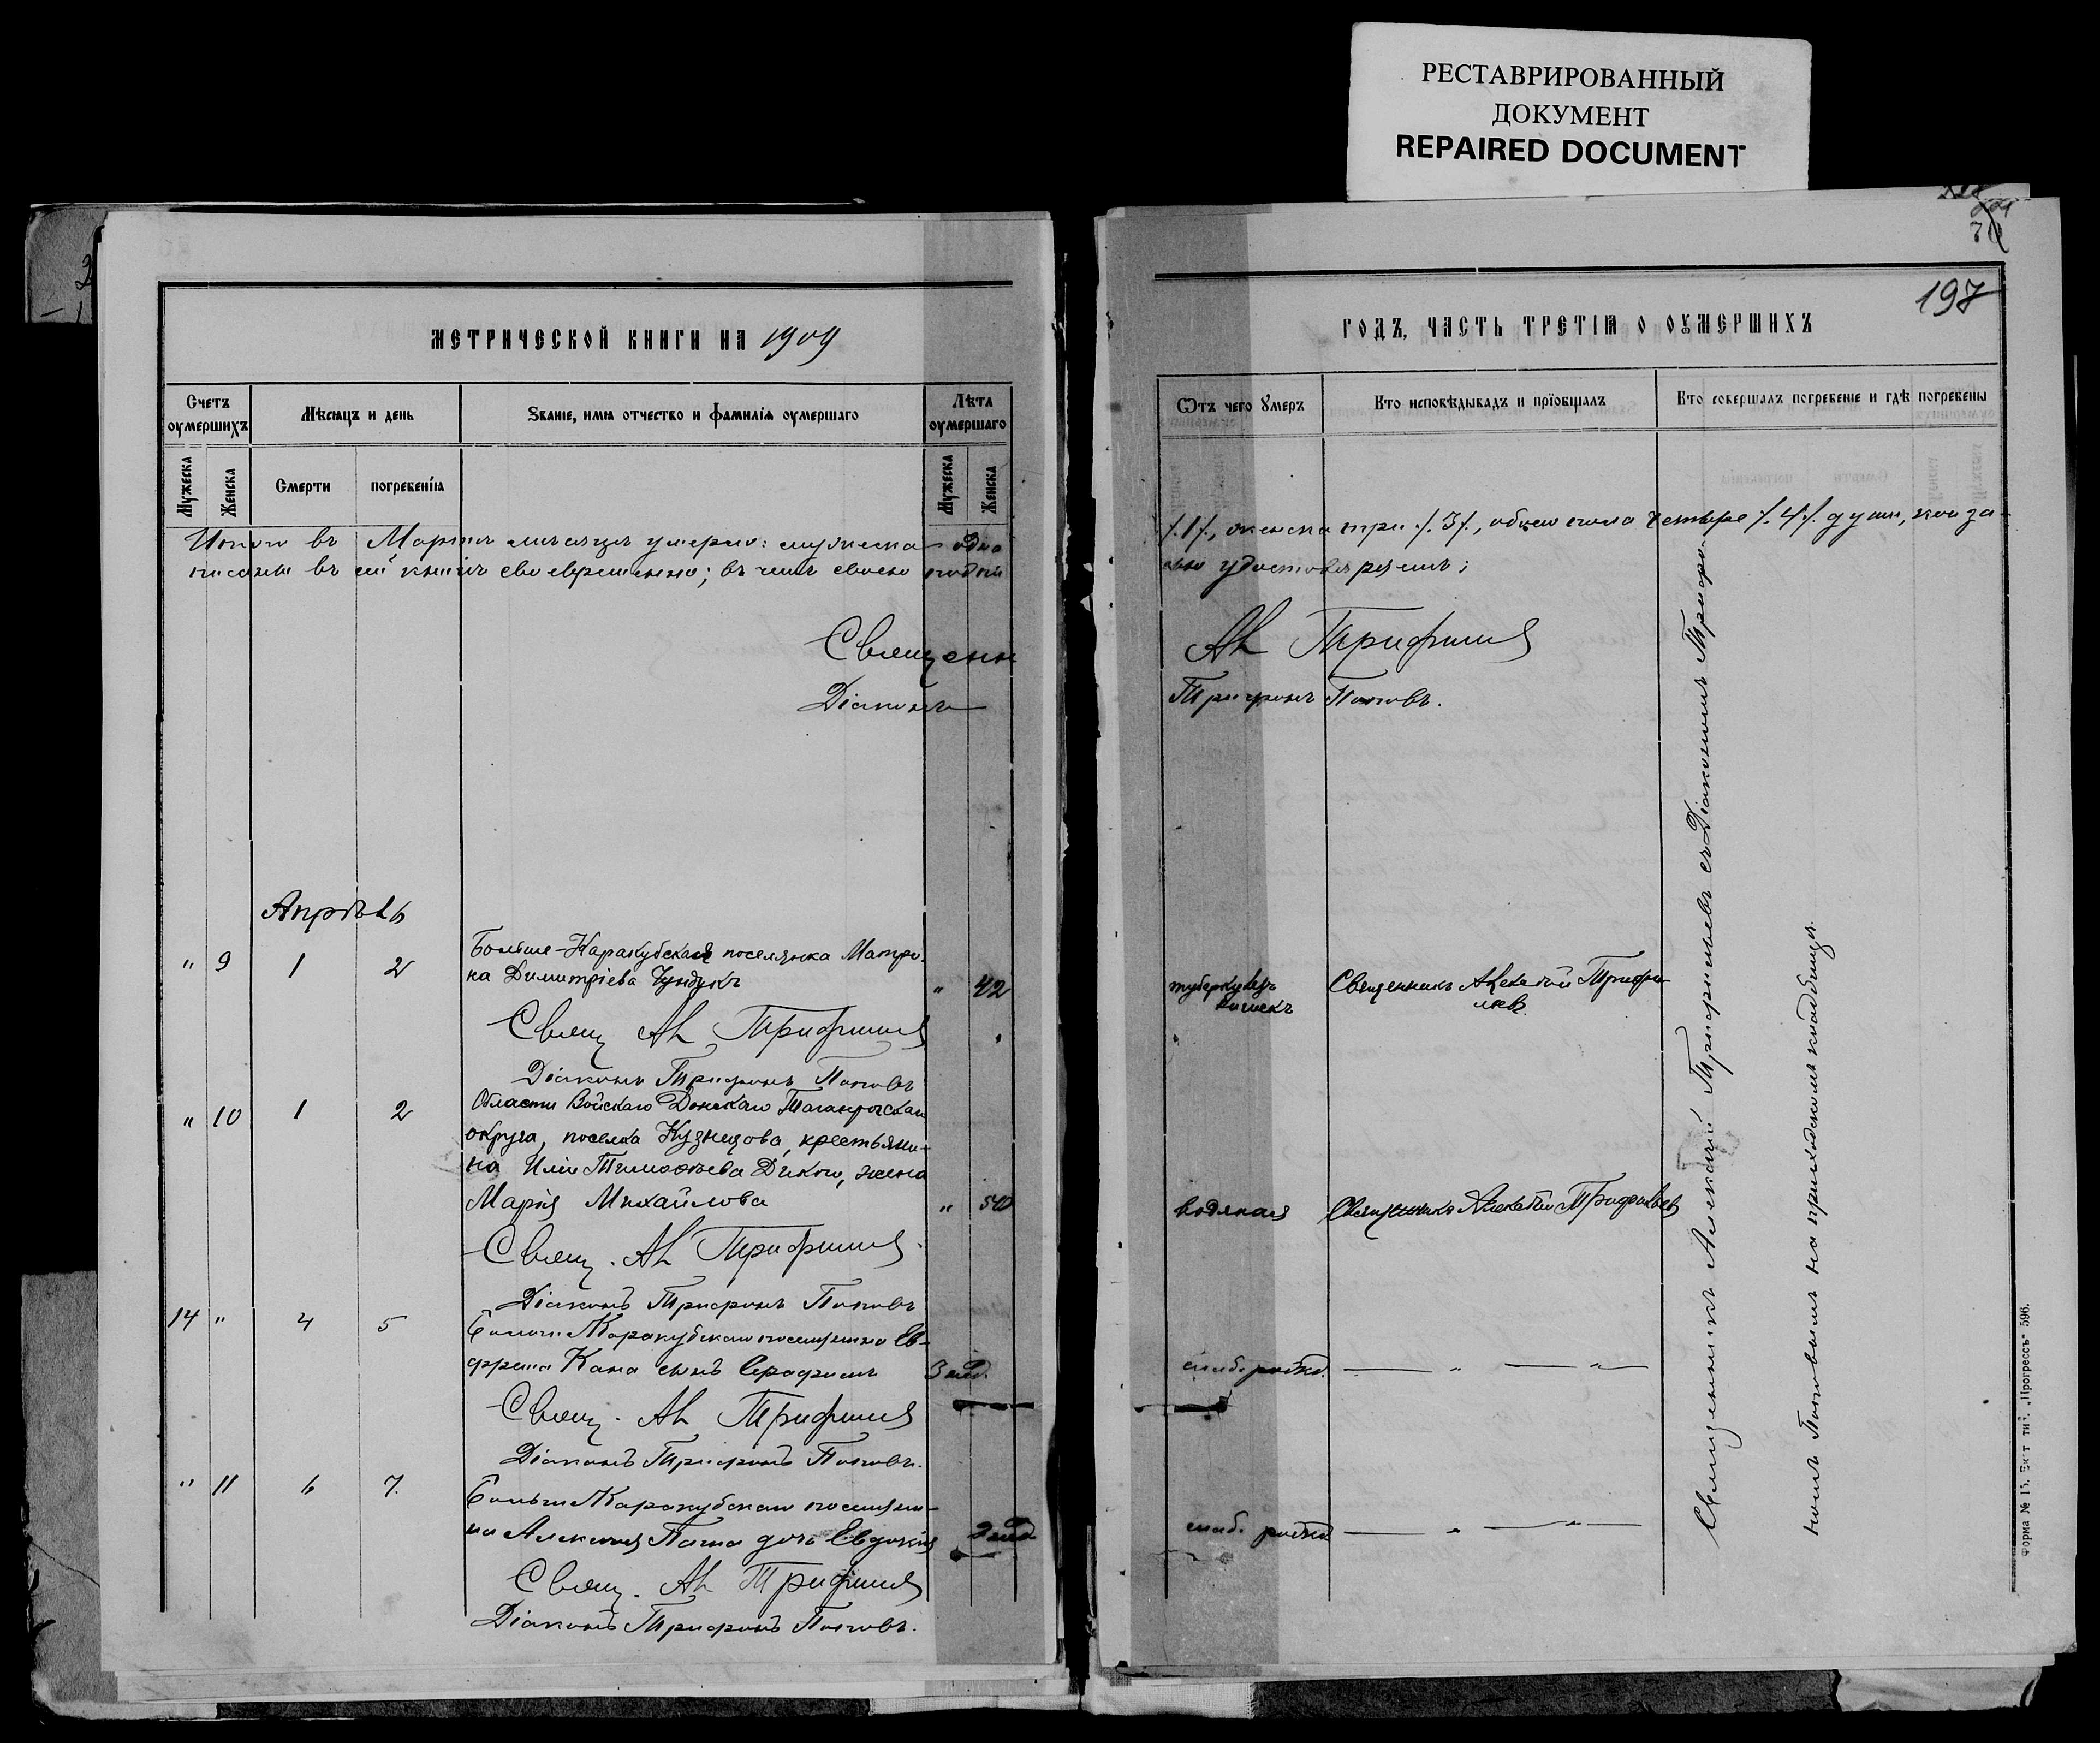 РЕСТАВРИРОВАННЫЙ
ДОКУМЕНТ
REPAIRED DOCUMENT
МЕТРИЧЕСКОЙ КНИГИ НА 1909
Счетъ оумершихъ
Мѣсяцъ и день
Званіе, имя отчество и фамилія оумершаго
Лѣта оумершаго
Мужеска
Женска
Смерти
погребенія
Мужеска
Женска
Итого въ Мартѣ мѣсяцѣ умерло: мужеска одна
писаны въ сей книгѣ своевременно; въ чемъ своею подпи
Священн
Діаконъ
Апрѣль
" 9 1 2 Больше-Каракубская поселянка Матро-
на Димитріева Чундукъ " 42
Свящ Ал Трифильев
Діаконъ Трифонъ Поповъ
" 10 1 2 Области Войскаго Донскаго Таганрогскаго
округа, поселка Кузнецова, крестьяни-
на Иліи Тимоѳеева Дикого, жена
Марія Михайлова " 50
Свящ. Ал Трифильев
Діаконъ Трифонъ Поповъ
14 " 4 5 Больше-Каракубскаго поселянина Ев-
фрема Кана сынъ Серафимъ 3 нед.
Свящ. Ал Трифильев
Діаконъ Трифонъ Поповъ.
" 11 6 7. Больше-Каракубскаго поселяни-
на Алексея Паша дочь Евдокія 2 нед.
Свящ. Ал Трифильев
Діаконъ Трифонъ Поповъ.
197
ГОДЪ, ЧАСТЬ ТРЕТІЯ О ОУМЕРШИХЪ
Ѿтъ чего Умеръ
Кто исповѣдывадъ и пріобщалъ
Кто совершалъ погребеніе и гдѣ погребены
/.1/., женска три /.3/., обоего пола четыре /.4/. души, кои за-
сью удостовѣряемъ;
Ал Трифильев
Трифонъ Поповъ.
туберкулезъ Священникъ Алексѣй Трифи-
кишекъ льевъ.
водяная Священникъ Алексѣй Трифильевъ
слаб. рожд. — " — "
слаб. рожд. — " — "
Священникъ Алексѣй Трифильевъ съ Діакономъ Трифо-
номъ Поповымъ на приходскомъ кладбищѣ.
Форма № 15. Ект тип. „Прогрессъ" 596.